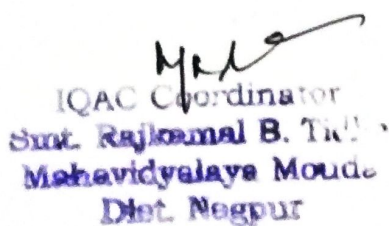 IQAC Coordinator
Smt. Rajkamal B.
Mahavidyalaya Mouda
Dist. Nagpur